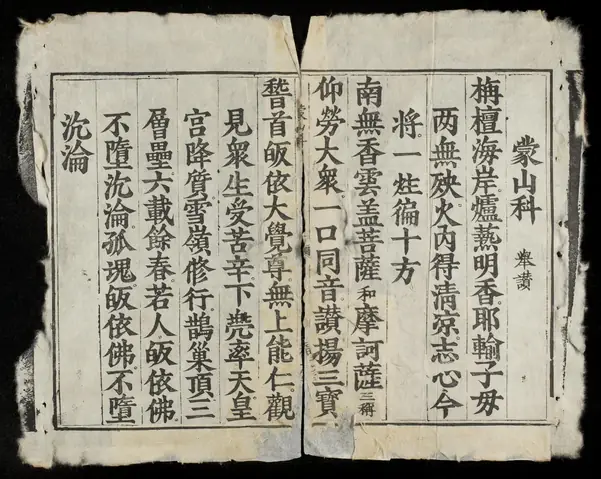 蒙山科 举讃
栴檀海岸爐爇明香耶輸子母
两無殃火内得清凉志心今
将一炷徧十方
南無香雲盖菩薩 和 摩訶薩 三稱
仰勞大衆一口同音讃揚三寶
蒙山科
稽首皈依大覺尊無上能仁觀
見衆生受苦辛下兠率天皇
宫降質雪嶺修行鵲巢頂三
層壘六載餘春若人皈依佛
不墮沉淪孤魂皈依佛不墮
沉淪